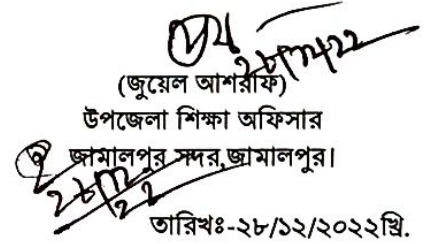 (জুয়েল আশরাফ)
উপজেলা শিক্ষা অফিসার
জামালপুর সদর,জামালপুর।
তারিখঃ-২৮/১২/২০২২খ্রি.